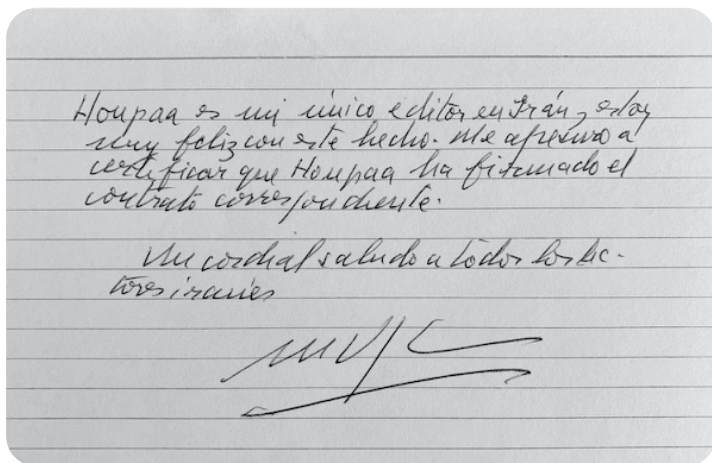 Houpaa es mi único editor en Irán y estoy
muy feliz con este hecho. Me apresuro a
certificar que Houpaa ha firmado el
contrato correspondiente.
Un cordial saludo a todos los lec-
tores iraníes